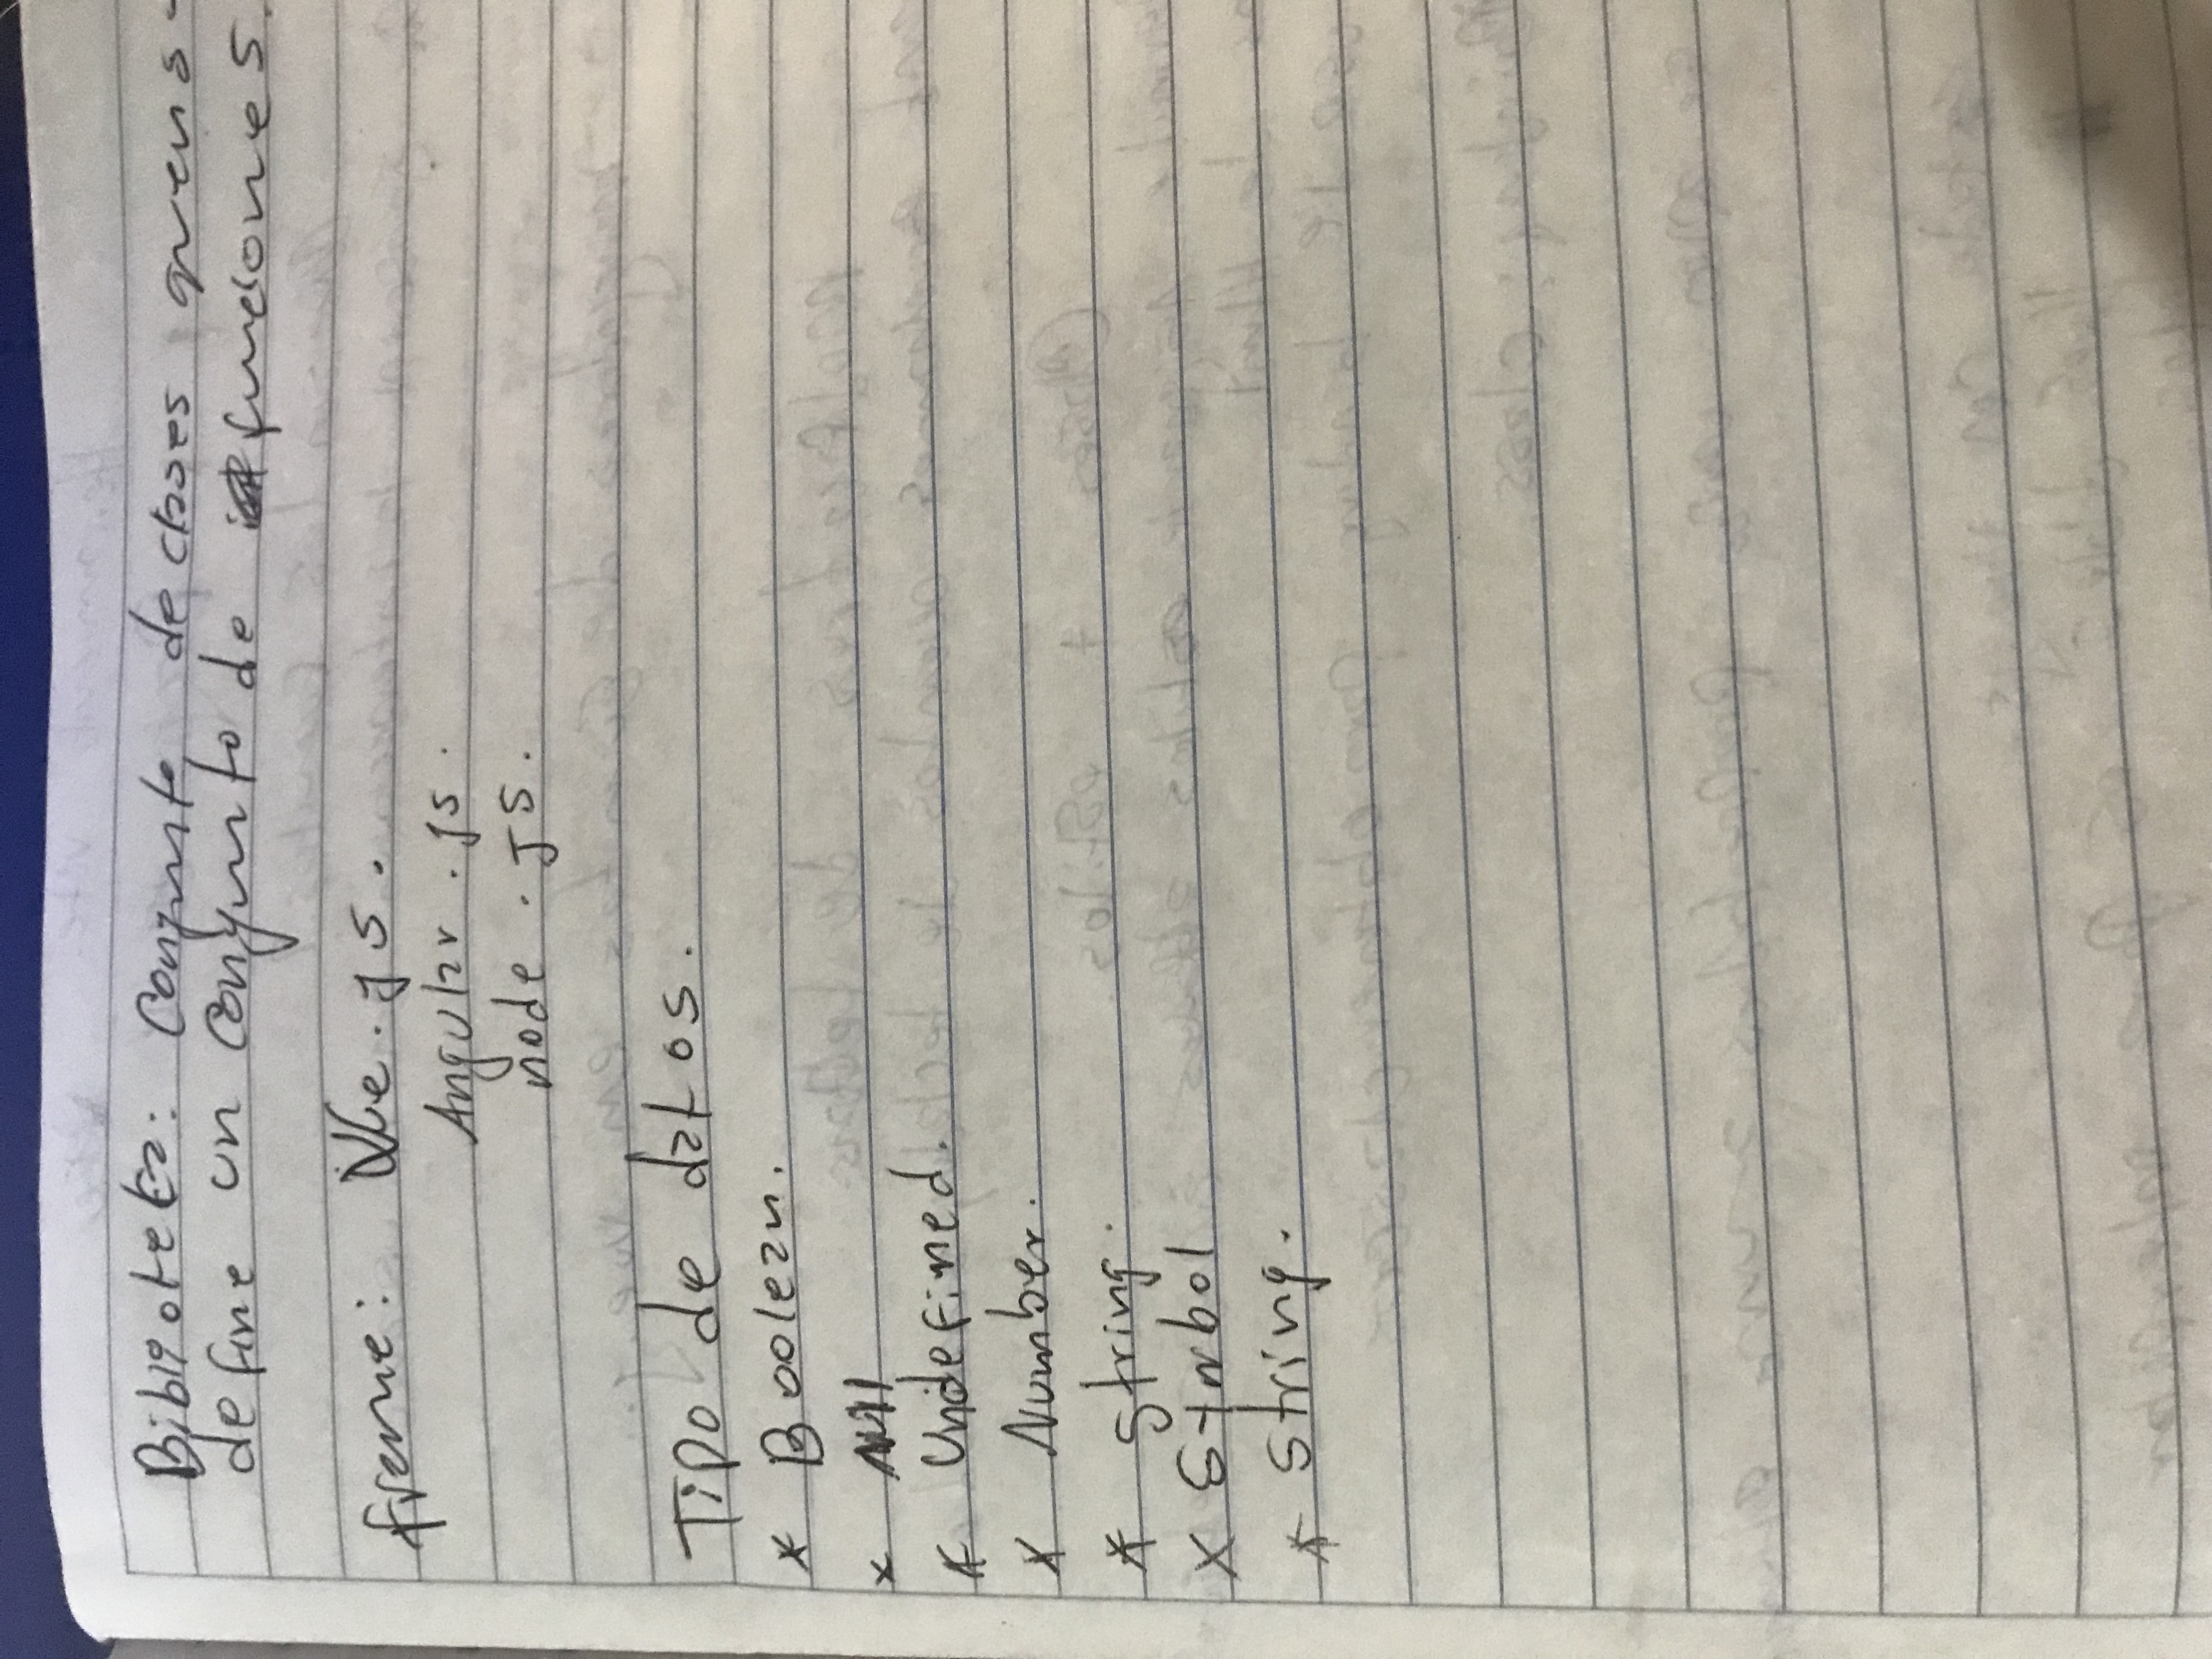 Biblioteka: Conjunto de clases
define un conjunto de funciones.
frame: Vue.js.
Angular.js.
node.js.
Tipo de datos.
* Boolean.
* Null
* Undefined.
* Number.
* string.
* Symbol
* string.